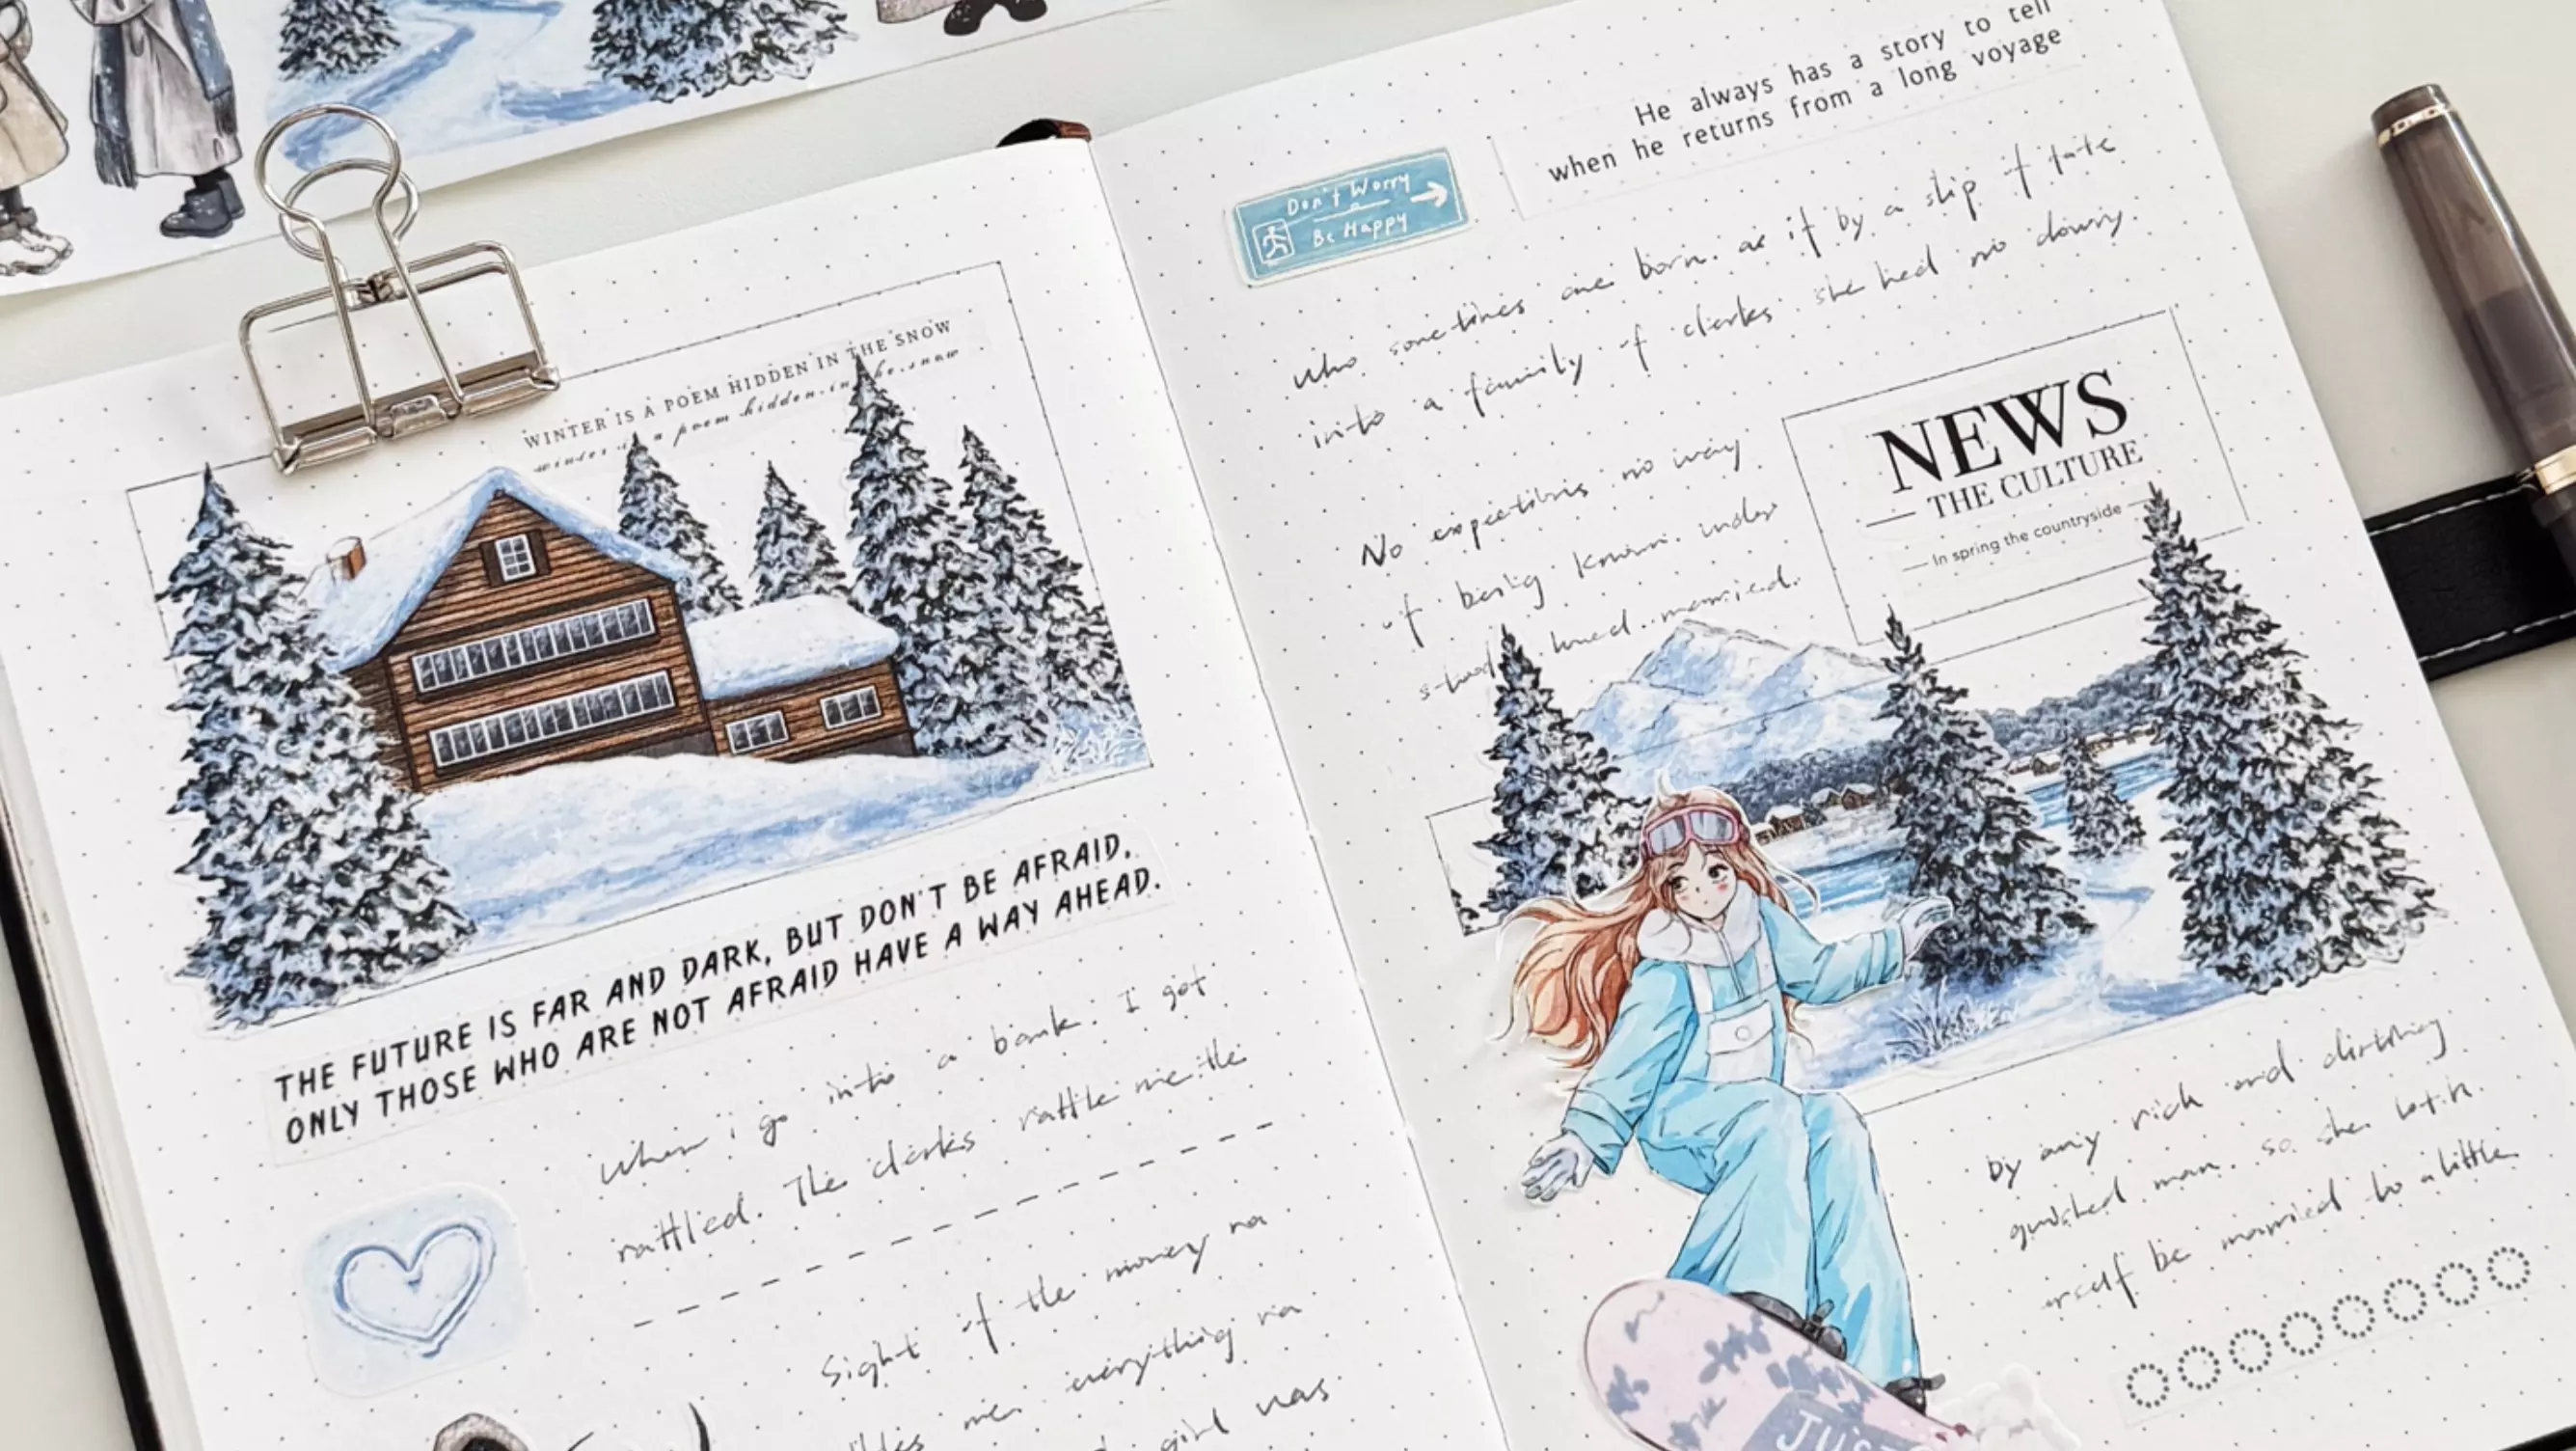 WINTER IS A POEM HIDDEN IN THE SNOW
winter is a poem hidden.in.the.snow
THE FUTURE IS FAR AND DARK, BUT DON'T BE AFRAID.
ONLY THOSE WHO ARE NOT AFRAID HAVE A WAY AHEAD.
When i go into a bank. I get
rattled. The clerks rattle me the
Sight of the money ra
me. everything ra
girl was
He always has a story to tell
when he returns from a long voyage
Don't Worry
Be Happy
who sometimes are born. as if by a slip of fate
into a family of clerks she had no dowry
No expections no way
of being known. under
loued. married.
NEWS
THE CULTURE
In spring the countryside
by any rich and disting
guished man. so she let h
erself be married to a little
JUST